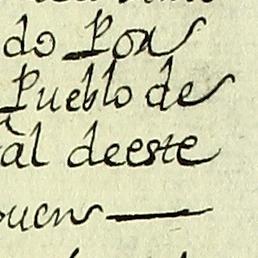 do Por
Pueblo de
al deeste